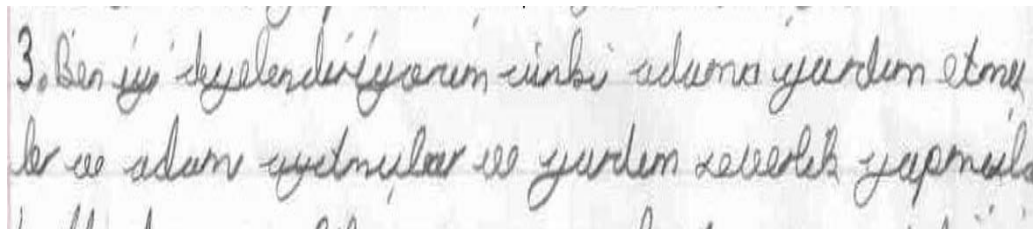 3. Ben iyi deyelendiriyorum cünki adama yardım etmiş
ler ve adam ve yardım severlik yapmışla